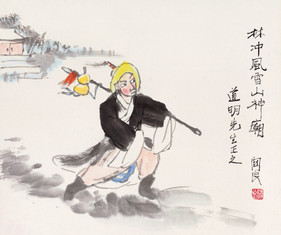 林冲風雪山神廟
道明先生正之
關良